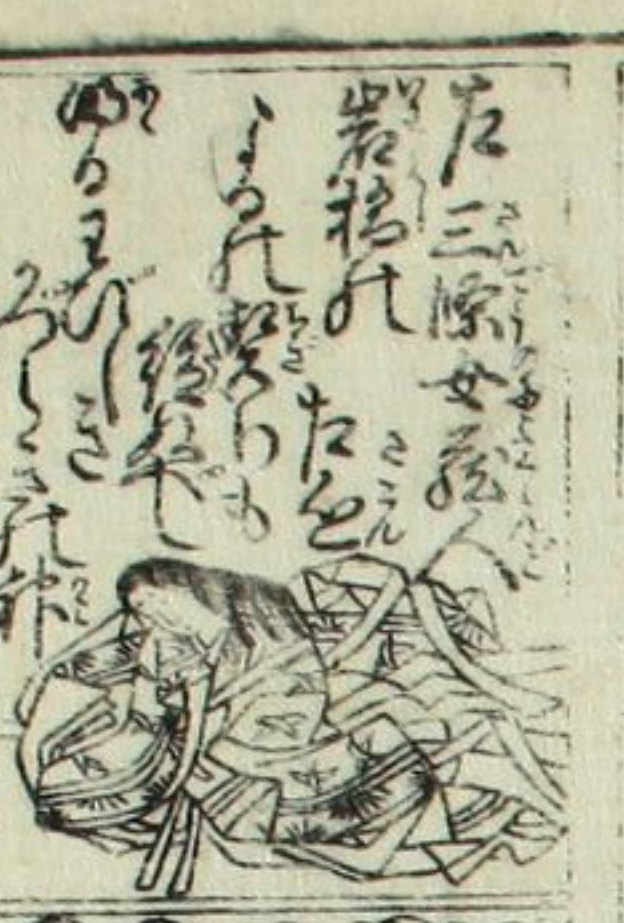 左 三條女蔵人
左近
岩橋の
よるの契りも
絶ぬべし
明るわびしき
かづらきの神